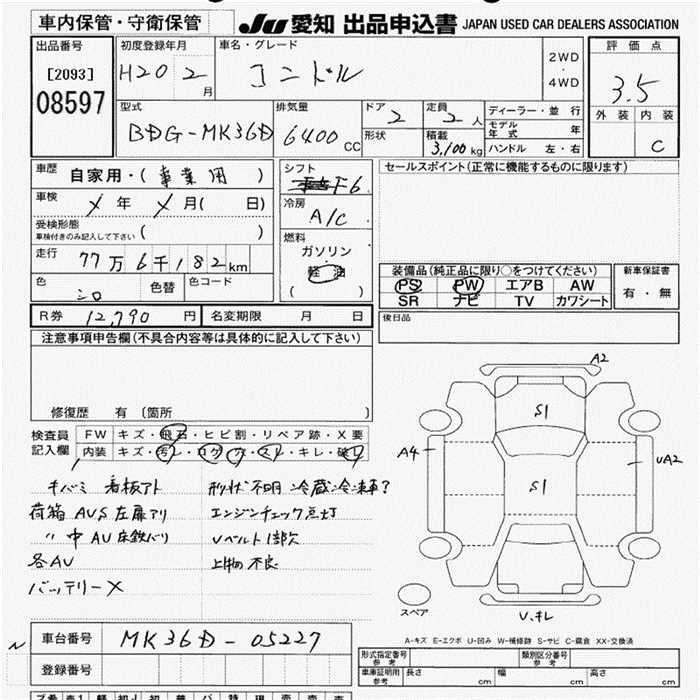 車内保管・守衛保管
JU 愛知 出品申込書 JAPAN USED CAR DEALERS ASSOCIATION
出品番号
[2093]
08597
初度登録年月
H20 2 月
車名・グレード
コンドル
2WD
・
4WD
評価点
3.5
外装 内装
C
型式
BDG-MK36D
排気量
6400 CC
ドア 2
形状
定員 2 人
積載 3,100 kg
ディーラー・並 行
モデル年式 年
ハンドル 左・右
車歴
自家用・( 事業用 )
車検
メ 年 メ 月( 日)
受検形態
車検付きのみ記入して下さい ( )
走行 77万6千182km
色 シロ 色替 色コード
シフト
F6
冷房
A/C
燃料
ガソリン
軽油
( )
セールスポイント(正常に機能するものに限ります)
装備品(純正品に限り○をつけてください)
PS PW エアB AW
SR ナビ TV カワシート
新車保証書
有・無
R券 12,790 円 名変期限 月 日
後日品
注意事項申告欄(不具合内容等は具体的に記入して下さい)
修復歴 有 (箇所 )
検査員
記入欄
FW キズ・飛石・ヒビ割・リペア跡・X要
内装 キズ・汚レ・コゲ・穴・スレ・キレ・破レ
キバミ 看板アト
荷箱 AVS 左扉アリ
〃 中 AU 床鉄バリ
各AU
バッテリーX
形状不明 冷蔵冷凍車?
エンジンチェック点灯
Vベルト1部欠
上物不良
A2
S1
A4
UA2
S1
スペア
V、キレ
A-キズ E-エクボ U-凹み W-補修跡 S-サビ C-腐食 XX-交換済
車台番号 MK36D-05227
登録番号
形式指定番号
参考
類別区分番号
参考
車庫証明用
参考
長さ cm 幅 cm 高さ cm